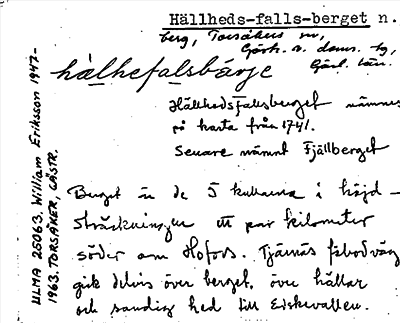 Hällheds-falls-berget n.
berg, Torsåkers sn,
Gästr. ö. doms. tg,
Gävl. län.
hàlhefalsbärje
Hällhedsfallsberget nämnes
på karta från 1741.
Senare nämnt Fjällberget
Berget är de 5 kullarna i höjd-
sträckningen ett par kilometer
söder om Hofors. Tjärnäs fäbodväg
gick delvis över berget, över hällar
och sandig hed till Eriksvallen.
ULMA 25063. William Eriksson 1947-
1963. TORSÅKER, GÄSTR.